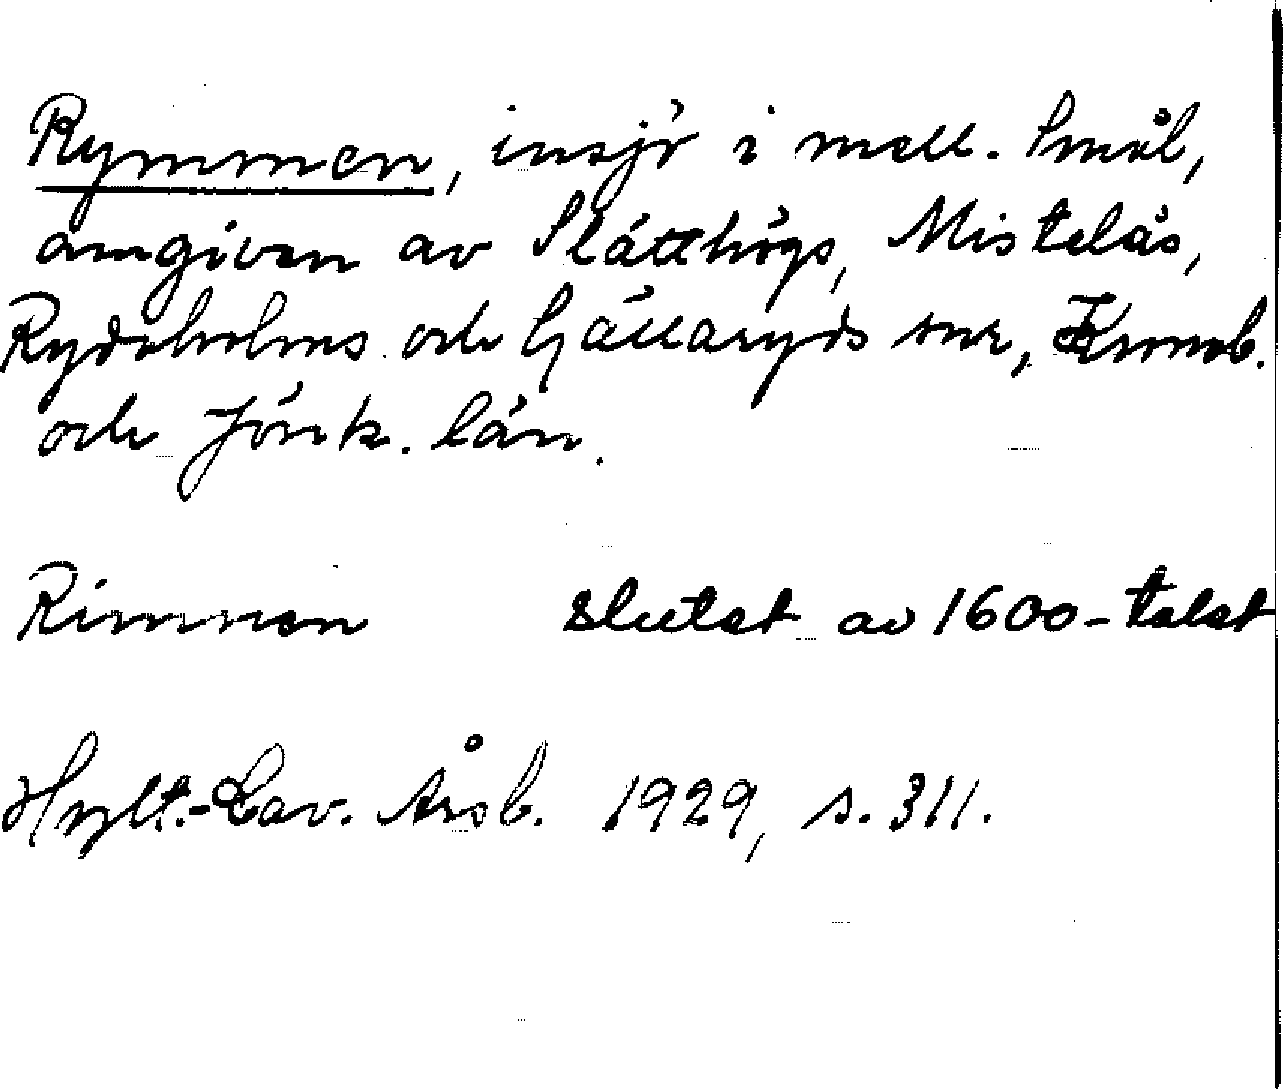 Rymmen, insjö i mell. Smål,
omgiven av Slätthögs, Mistelås,
Rydaholms och Gällaryds snr, Kronob.
och Jönk. län.
Rimmen slutet av 1600-talet
Hylt.-Cav. Årsb. 1929, s. 311.